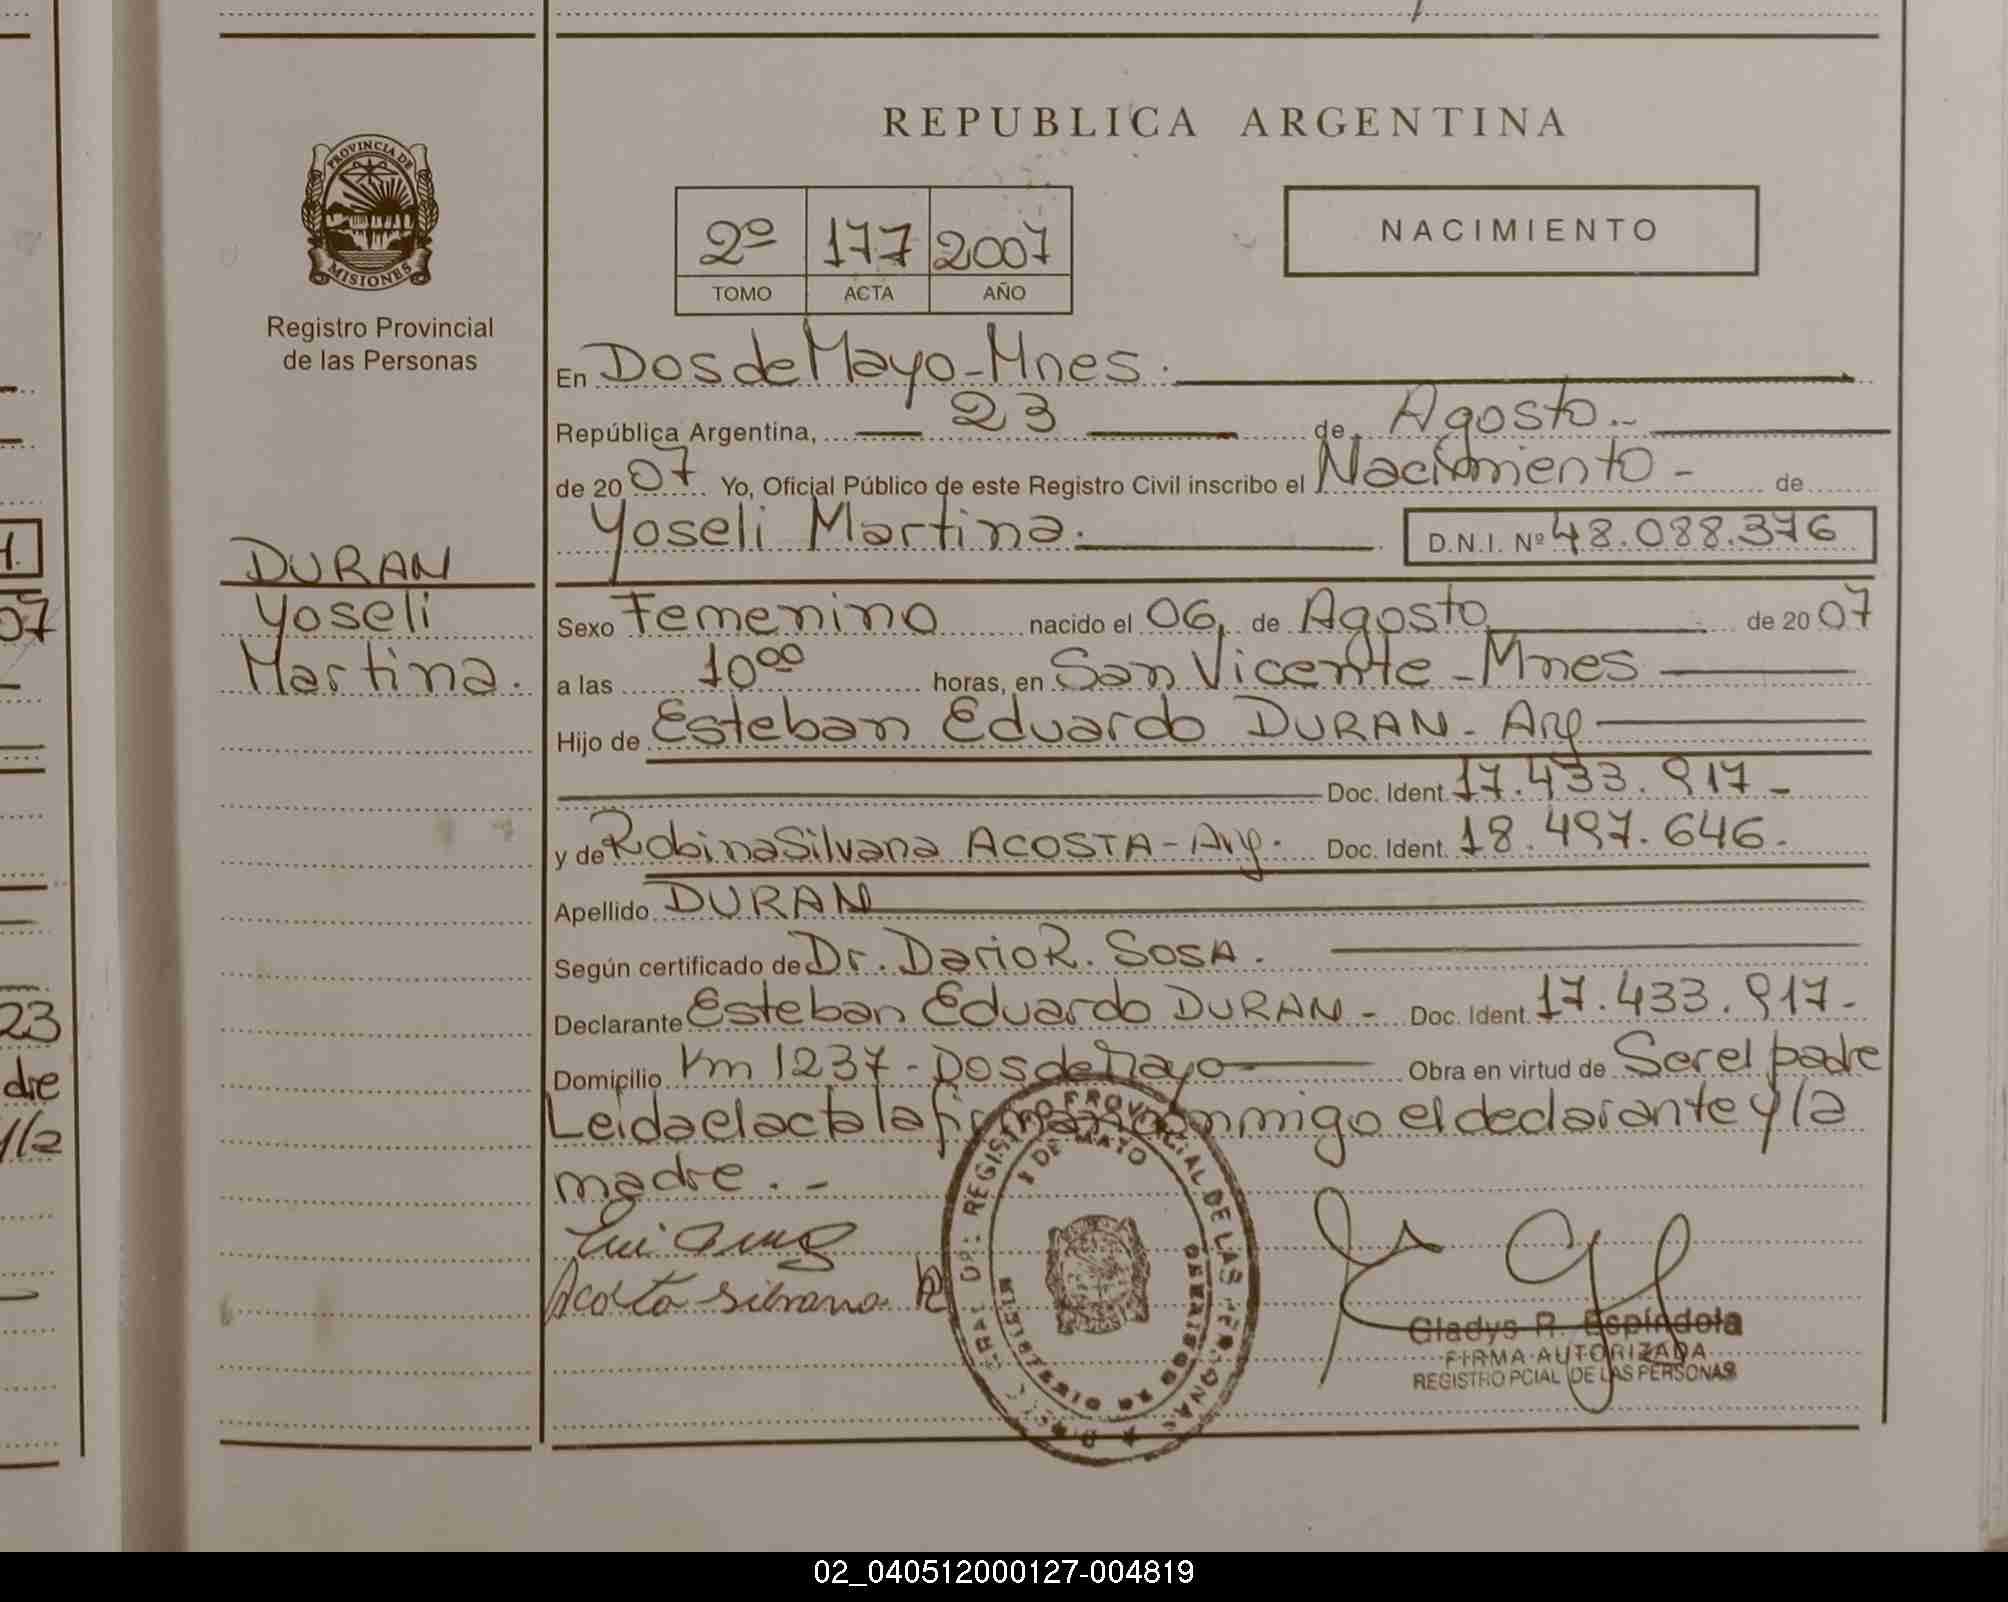 REPUBLICA ARGENTINA
PROVINCIA DE
MISIONES
Registro Provincial
de las Personas
2º 177 2007
TOMO ACTA AÑO
NACIMIENTO
En Dos de Mayo - Mnes.
República Argentina, 23 de Agosto.-
de 2007 Yo, Oficial Público de este Registro Civil inscribo el Nacimiento - de
Yoseli Martina. D.N.I. Nº 48.088.376
DURAN
Yoseli
Martina.
Sexo Femenino nacido el 06 de Agosto de 2007
a las 10⁰⁰ horas, en San Vicente - Mnes
Hijo de Esteban Eduardo DURAN - Arg
Doc. Ident. 17.433.917 -
y de Robina Silvana ACOSTA - Arg. Doc. Ident. 18.497.646.
Apellido DURAN
Según certificado de Dr. Dario R. SOSA.
Declarante Esteban Eduardo DURAN - Doc. Ident. 17.433.917 -
Domicilio Km 1237 - Dos de Mayo Obra en virtud de Ser el padre
Leida el acta la firman conmigo el declarante y la
madre. -
Acosta Silvana R
REGISTRO PROVINCIAL DE LAS PERSONAS
2 DE MAYO
MISIONES
Gladys R. Espíndola
FIRMA AUTORIZADA
REGISTRO PCIAL DE LAS PERSONAS
07
23
dre
y la
02_040512000127-004819